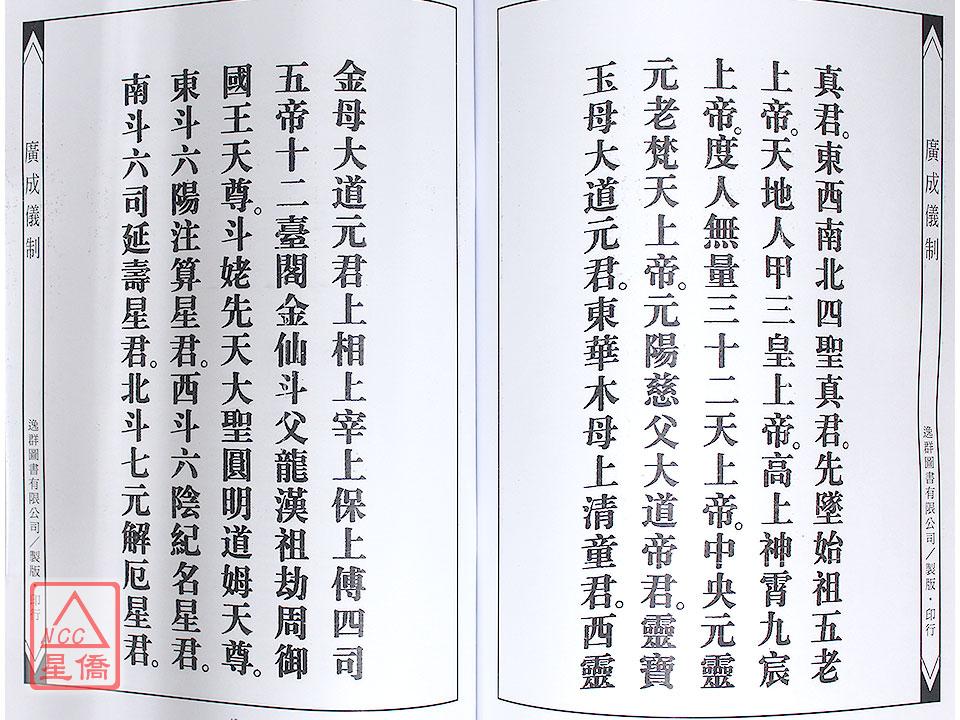 廣成儀制
逸群圖書有限公司／製版・印行
真君。東西南北四聖真君。先墜始祖五老
上帝。天地人甲三皇上帝。高上神霄九宸
上帝。度人無量三十二天上帝。中央元靈
元老梵天上帝。元陽慈父大道帝君。靈寶
玉母大道元君。東華木母上清童君。西靈
金母大道元君上相上宰上保上傅四司
五帝十二臺閣金仙斗父龍漢祖劫周御
國王天尊。斗姥先天大聖圓明道姆天尊。
東斗六陽注算星君。西斗六陰紀名星君。
南斗六司延壽星君。北斗七元解厄星君。
廣成儀制
逸群圖書有限公司／製版・印行
NCC
星僑